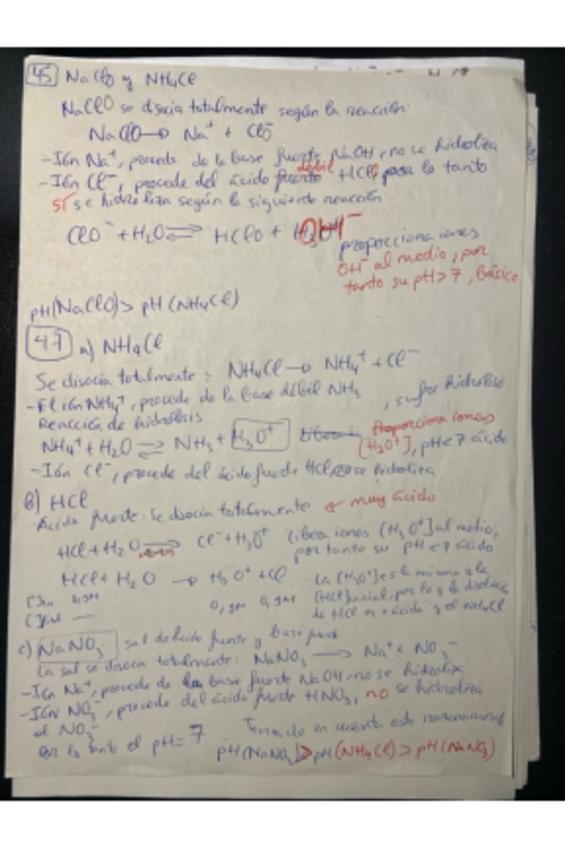 45 NaClO y NH4Cl
NaClO se disocia totalmente según la reacción:
NaClO → Na⁺ + ClO⁻
- Ión Na⁺, procede de la base fuerte NaOH, no se hidroliza
- Ión Cl⁻, procede del ácido fuerte débil HCl, por lo tanto
sí se hidroliza según la siguiente reacción
ClO⁻ + H2O ⇌ HClO + OH⁻
proporciona iones
OH⁻ al medio, por
tanto su pH>7, básico
pH(NaClO) > pH(NH4Cl)
47 a) NH4Cl
Se disocia totalmente: NH4Cl → NH4⁺ + Cl⁻
- El ión NH4⁺, procede de la base débil NH3, hidrólisis
Reacción de hidrólisis
NH4⁺ + H2O ⇌ NH3 + H3O⁺ Proporciona iones
[H3O⁺], pH<7 ácido
- Ión Cl⁻, procede del ácido fuerte HCl, no se hidroliza
b) HCl
Ácido fuerte: Se disocia totalmente muy ácido
HCl + H2O → Cl⁻ + H3O⁺ libera iones [H3O⁺] al medio,
por tanto su pH<7 ácido
HCl + H2O → H3O⁺ + Cl
La [H3O⁺] es la misma a la
[HCl] inicial, por lo
0,1M 0,1M
c) NaNO3 sal de ácido fuerte y base
La sal se disocia totalmente: NaNO3 → Na⁺ + NO3⁻
- Ión Na⁺, procede de la base fuerte NaOH, no se hidroliza
- Ión NO3⁻, procede del ácido fuerte HNO3, no se hidroliza
el NO3⁻
Por lo tanto el pH = 7 Teniendo en cuenta este razonamiento
pH(NaNO3) > pH(NH4Cl) > pH(NaNO3)